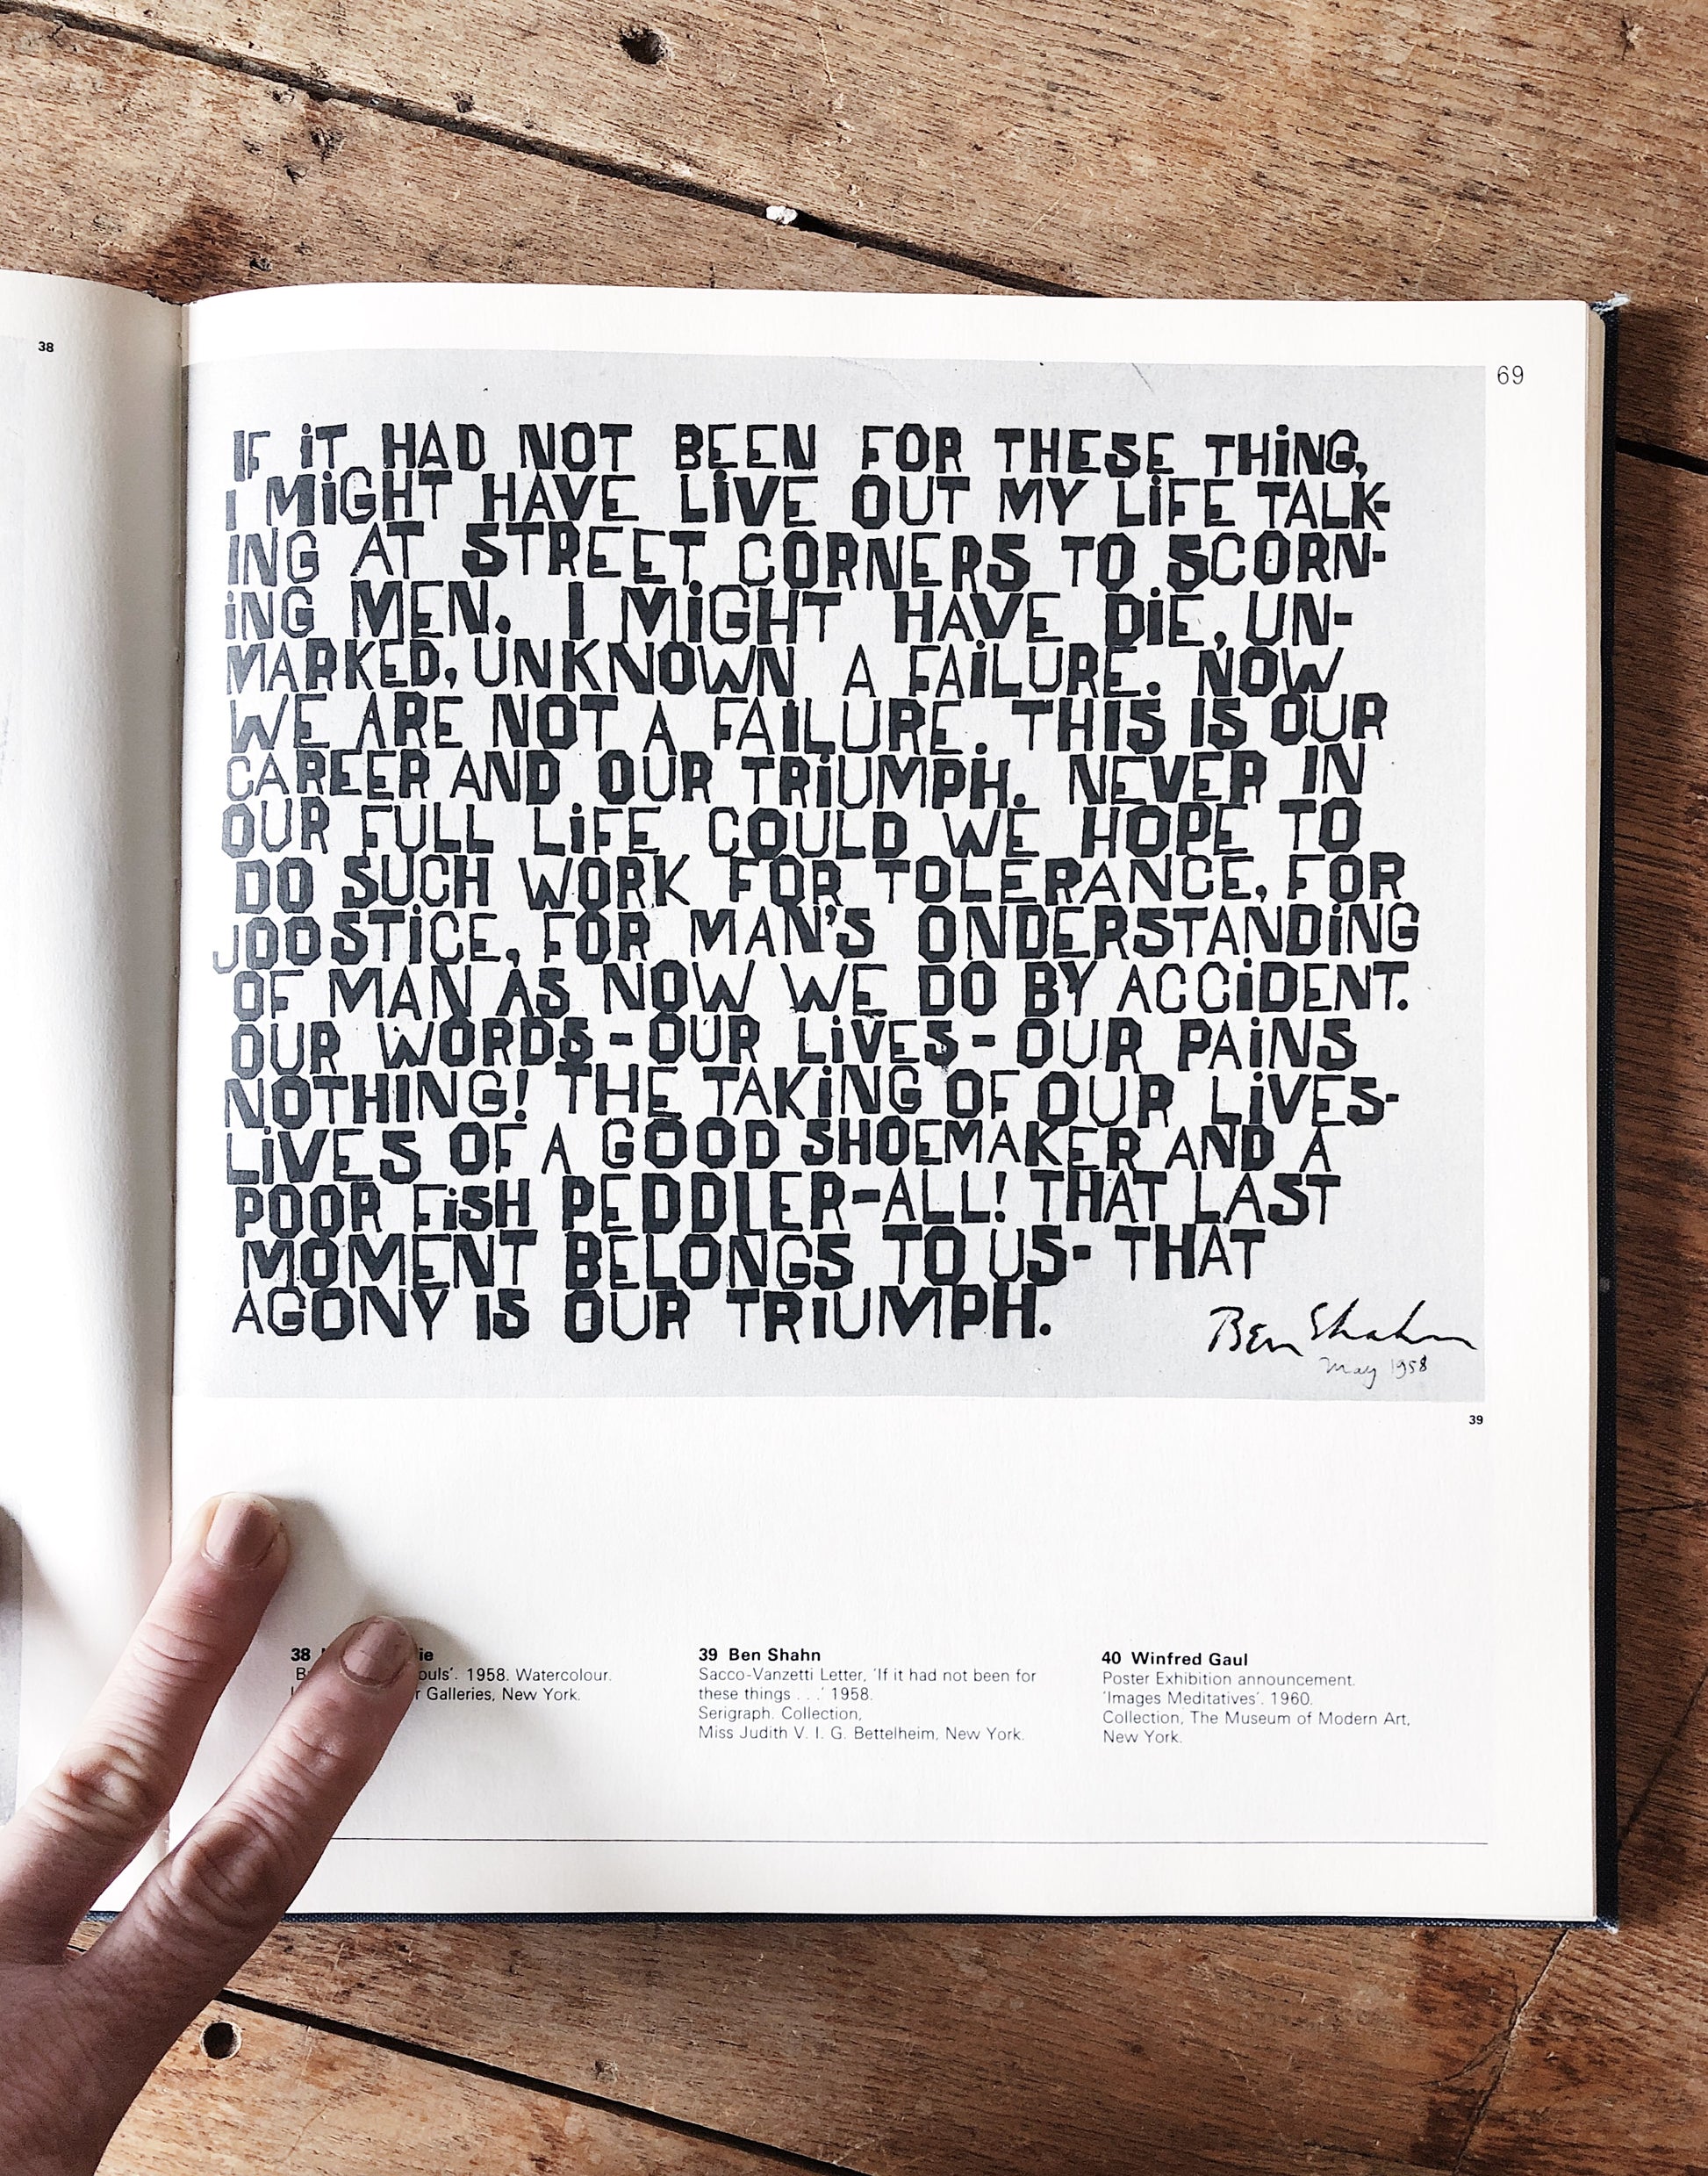 38
69
IF iT HAD NOT BEEN FOR THESE THiNG,
I MiGHT HAVE LiVE OUT MY LiFE TALK-
ING AT STREET CORNERS TO SCORN-
iNG MEN. I MiGHT HAVE DiE, UN-
MARKED, UNKNOWN A FAiLURE. NOW
WE ARE NOT A FAILURE. THIS IS OUR
CAREER AND OUR TRiUMPH. NEVER IN
OUR FULL LiFE COULD WE HOPE TO
DO SUCH WORK FOR TOLERANCE, FOR
JOOSTiCE, FOR MAN'S ONDERSTANDiNG
OF MAN AS NOW WE DO BY ACCiDENT.
OUR WORDS - OUR LiVES - OUR PAiNS
NOTHING! THE TAKiNG OF OUR LiVES-
LiVES OF A GOOD SHOEMAKER AND A
POOR FiSH PEDDLER-ALL! THAT LAST
MOMENT BELONGS TO US- THAT
AGONY IS OUR TRiUMPH.
Ben Shahn
May 1958
39
38 ie
ouls'. 1958. Watercolour.
Galleries, New York.
39 Ben Shahn
Sacco-Vanzetti Letter, 'If it had not been for
these things . . .' 1958.
Serigraph. Collection,
Miss Judith V. I. G. Bettelheim, New York.
40 Winfred Gaul
Poster Exhibition announcement.
'Images Meditatives'. 1960.
Collection, The Museum of Modern Art,
New York.